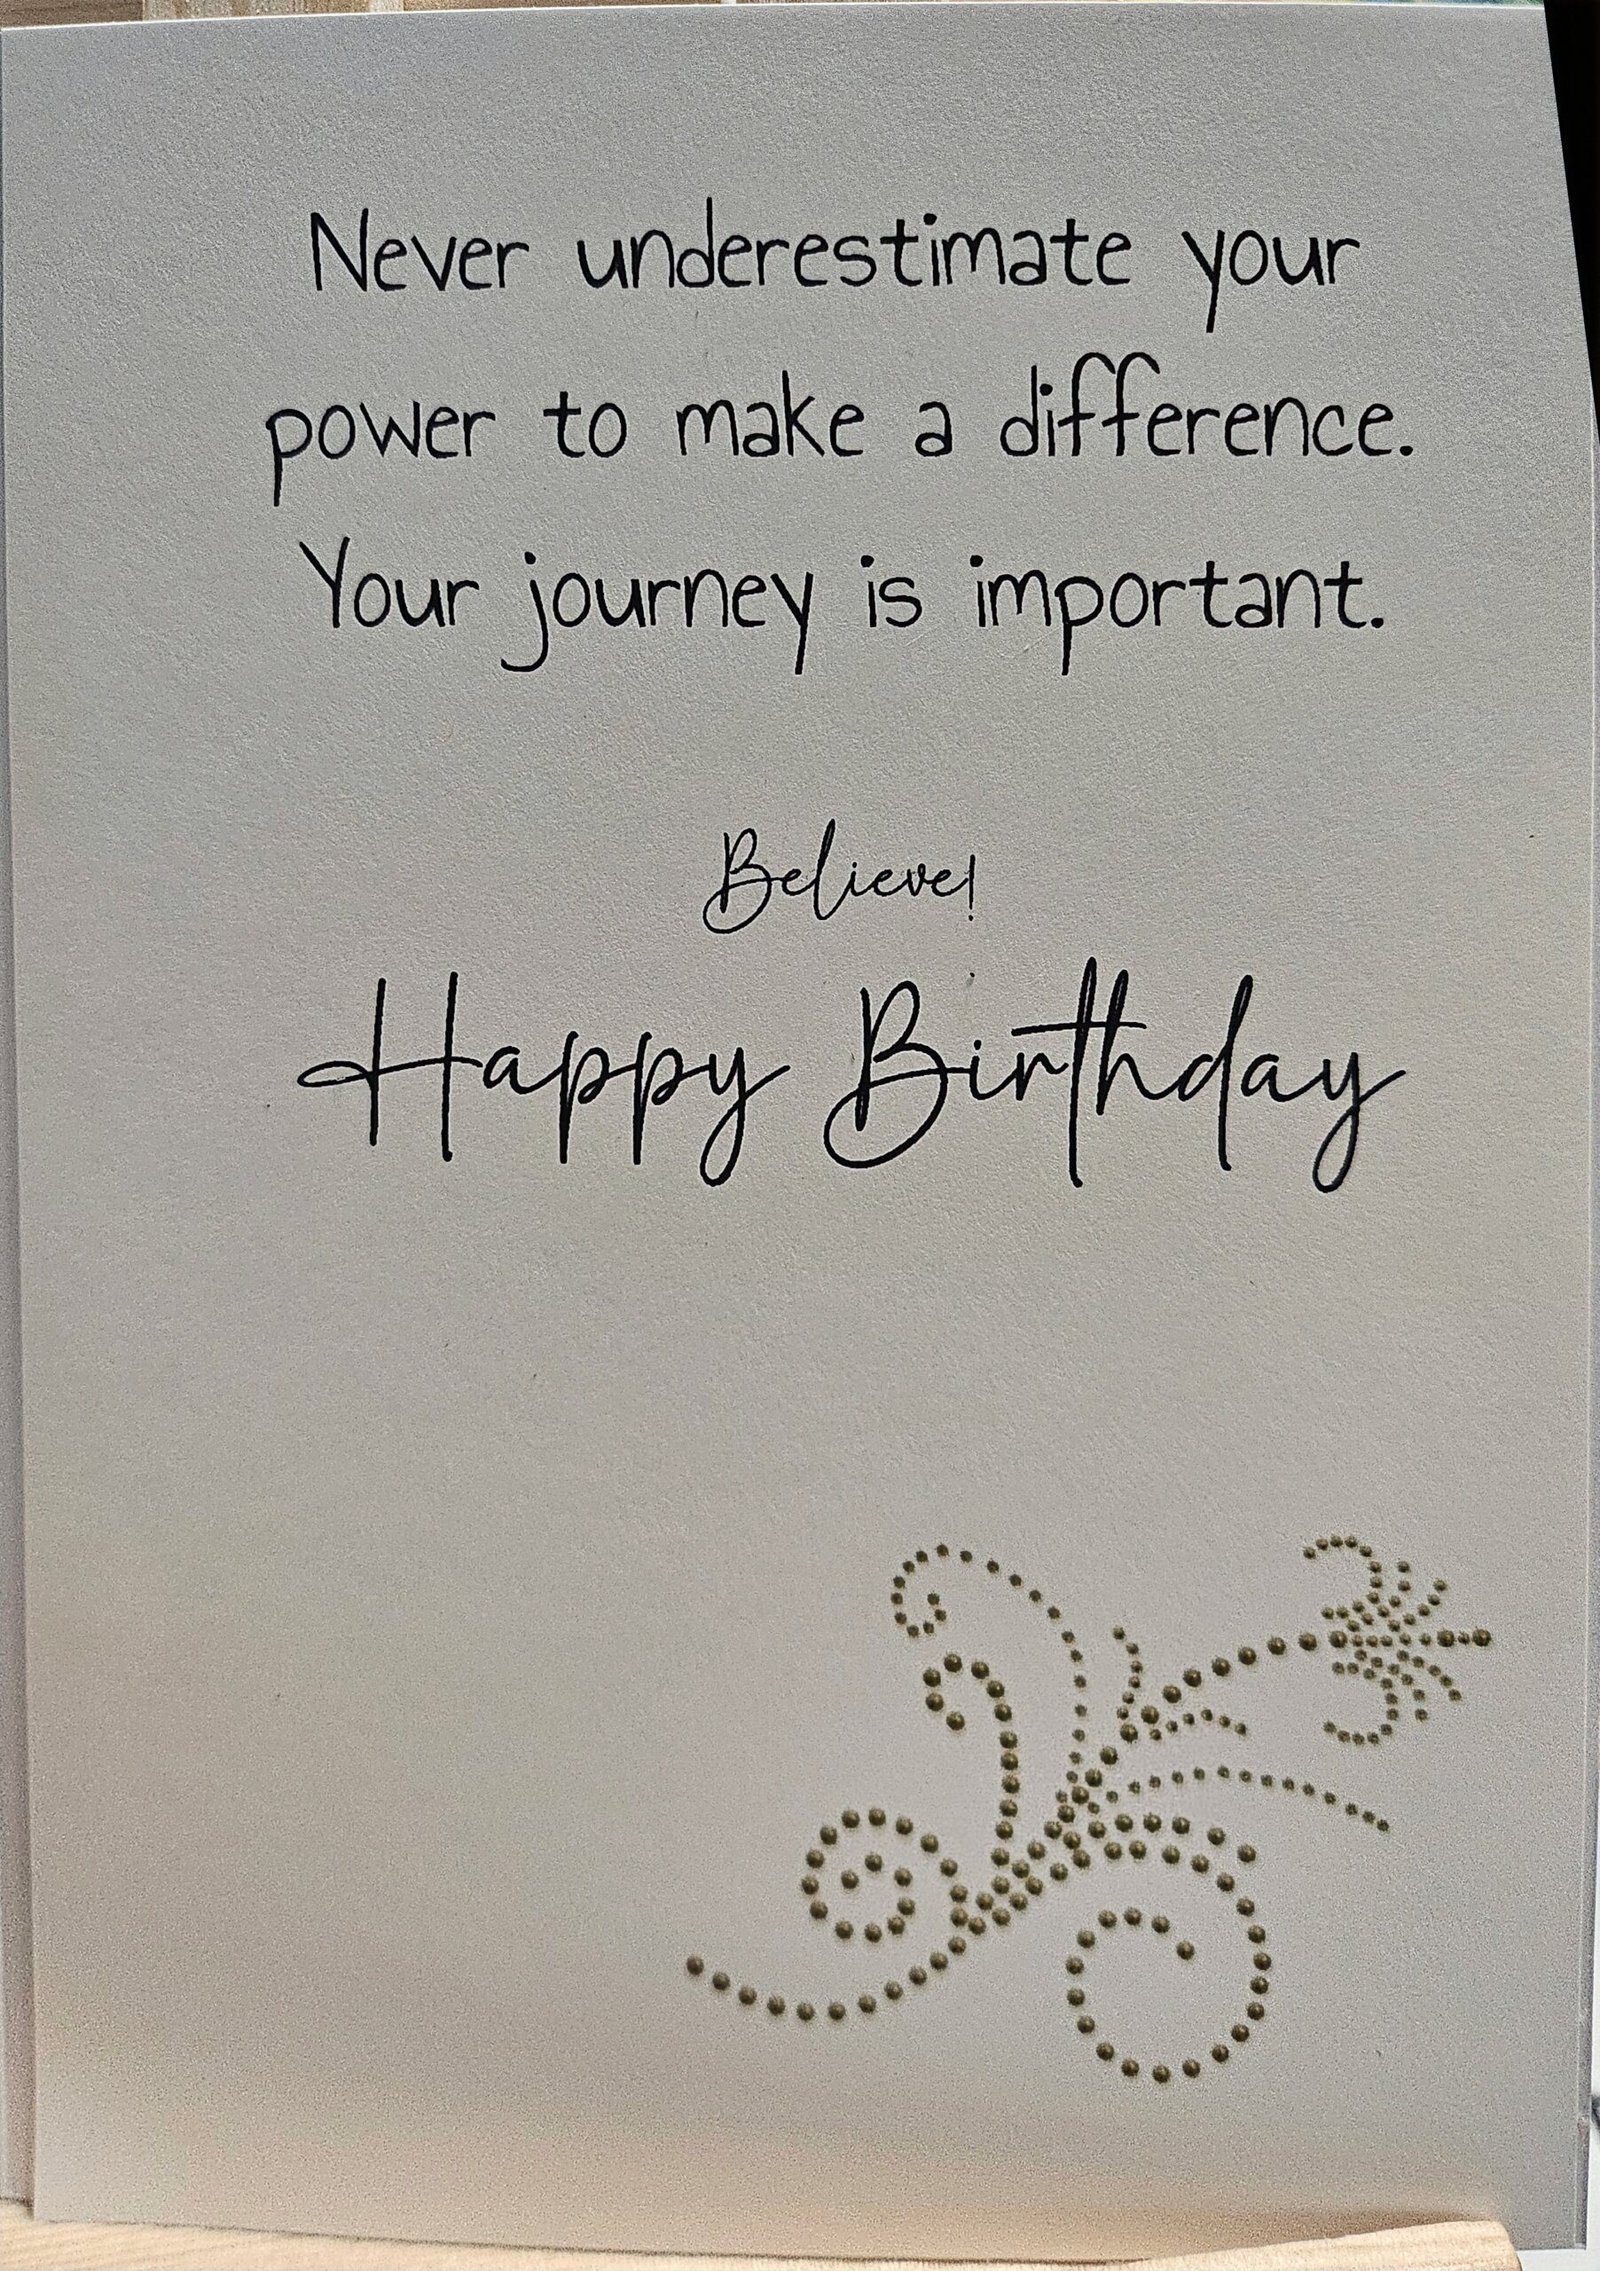 Never underestimate your
power to make a difference.
Your journey is important.
Believe!
Happy Birthday